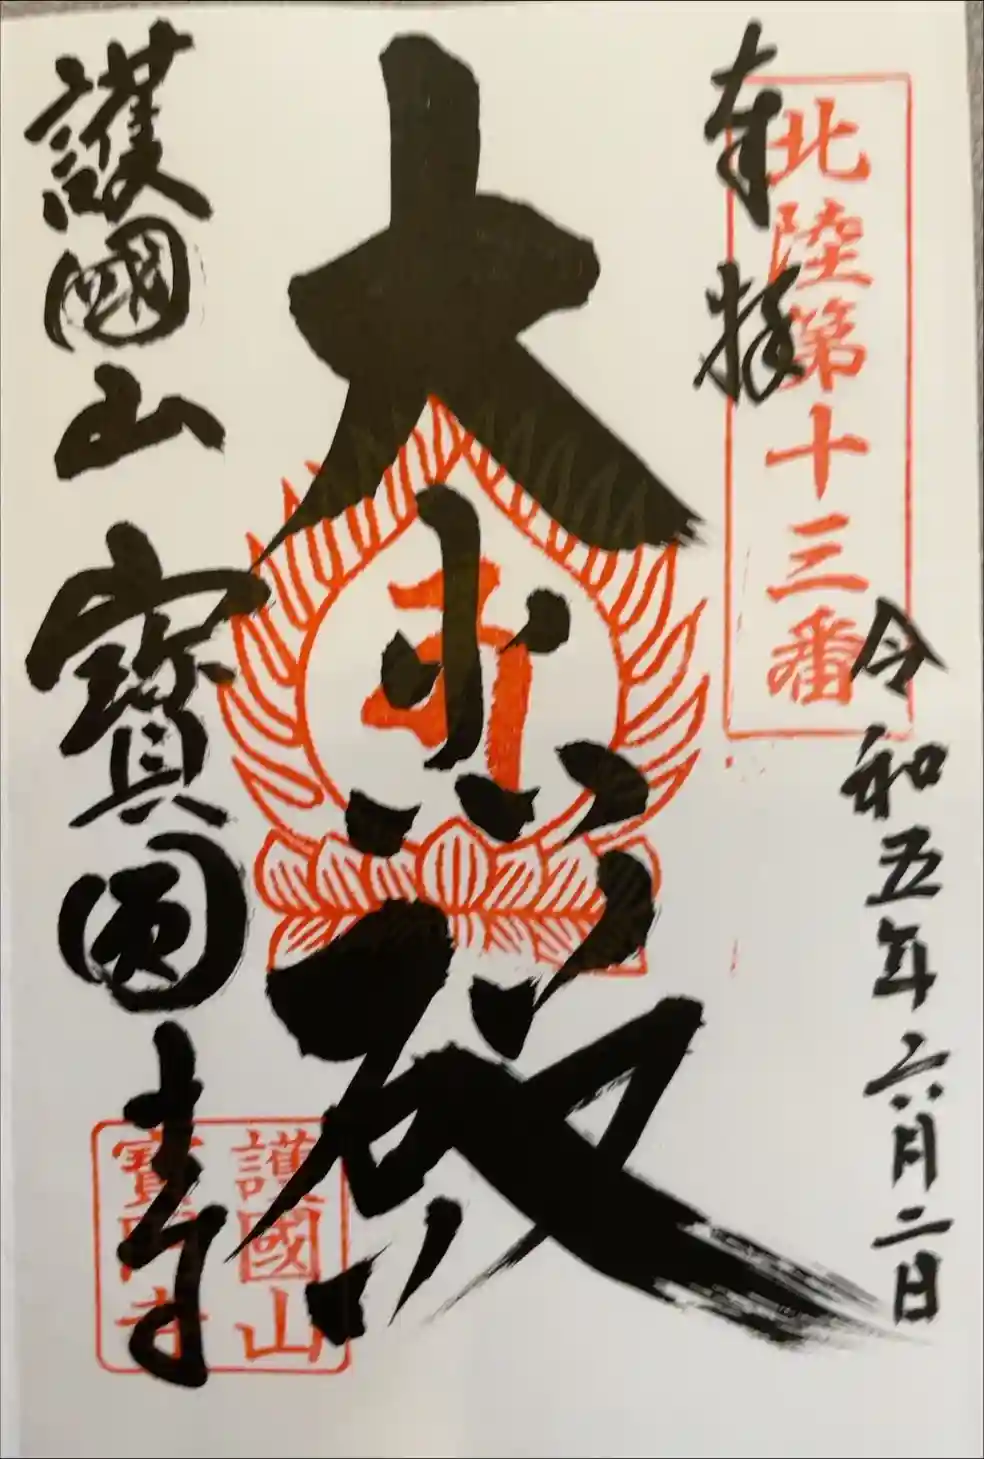 奉拝
北陸第十三番
令和五年六月二日
護國山 寶圓寺
護國山
寶圓寺